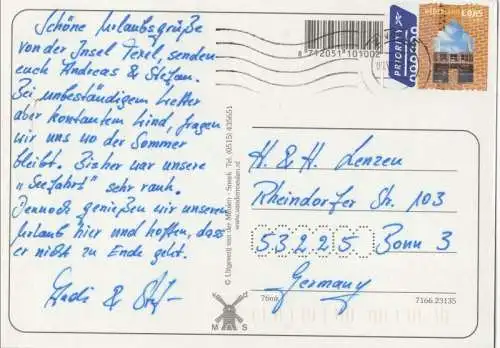 Schöne Urlaubsgrüße
von der Insel Texel, senden
euch Andreas & Stefan.
Bei unbeständigem Wetter
aber konstantem Wind, fragen
wir uns wo der Sommer
bleibt. Bisher war unsere
„Seefahrt" sehr rauh.
Dennoch genießen wir unseren
Urlaub hier und hoffen, dass
er nicht zu Ende geht.
Andi &
8 712051 101002
PRIORITY
0,65
© Uitgeverij van der Meulen - Sneek Tel. (0515) 435651
www.vandermeulen.nl
H. & H. Lenzen
Rheindorfer Str. 103
53225 Bonn 3
Germany
M S
76mk
7166.23135